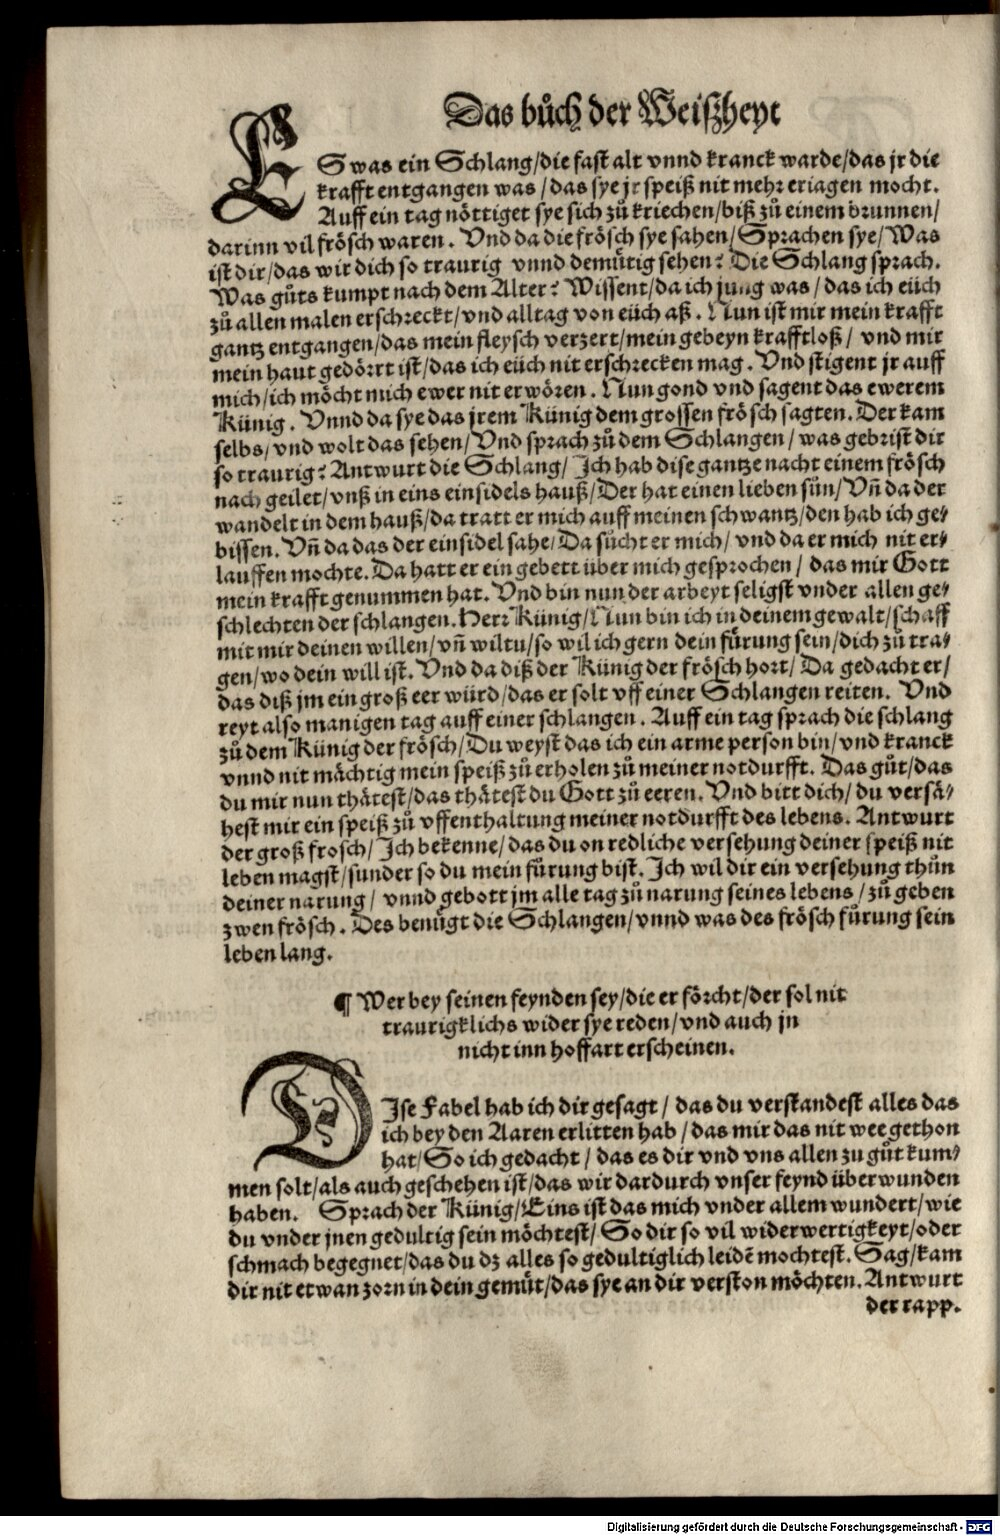 Das bůch der Weißheyt
ES was ein Schlang/die fast alt vnnd kranck warde/das jr die
krafft entgangen was/das sye jr speiß nit mehr eriagen mocht.
Auff ein tag nöttiget sye sich zů kriechen/biß zů einem brunnen/
darinn vil frösch waren. Vnd da die frösch sye sahen/Sprachen sye/Was
ist dir/das wir dich so traurig vnnd demütig sehen? Die Schlang sprach.
Was gůts kumpt nach dem Alter? Wissent/da ich jung was/das ich eüch
zů allen malen erschreckt/vnd alltag von eüch aß. Nun ist mir mein krafft
gantz entgangen/das mein fleysch verzert/mein gebeyn krafftloß/ vnd mir
mein haut gedörrt ist/das ich eüch nit erschrecken mag. Vnd stigent jr auff
mich/ich möcht mich ewer nit erwören. Nun gond vnd sagent das ewerem
Künig. Vnnd da sye das jrem Künig dem grossen frösch sagten. Der kam
selbs/vnd wolt das sehen/Vnd sprach zů dem Schlangen/was gebrist dir
so traurig? Antwurt die Schlang/Ich hab dise gantze nacht einem frösch
nach geilet/vnß in eins einsidels hauß/Der hat einen lieben sün/Vñ da der
wandelt in dem hauß/da tratt er mich auff meinen schwantz/den hab ich ge/
bissen. Vñ da das der einsidel sahe/Da sůcht er mich/vnd da er mich nit er/
lauffen mochte. Da hatt er ein gebett über mich gesprochen/das mir Gott
mein krafft genummen hat. Vnd bin nun der arbeyt seligst vnder allen ge/
schlechten der schlangen. Herr Künig/Nun bin ich in deinem gewalt/schaff
mit mir deinen willen/vñ wiltu/so wil ich gern dein fürung sein/dich zů tra/
gen/wo dein will ist. Vnd da diß der Künig der frösch hort/Da gedacht er/
das diß jm ein groß eer würd/das er solt vff einer Schlangen reiten. Vnd
reyt also manigen tag auff einer schlangen. Auff ein tag sprach die schlang
zů dem Künig der frösch/Du weyst das ich ein arme person bin/vnd kranck
vnnd nit mächtig mein speiß zů erholen zů meiner notdurfft. Das gůt/das
du mir nun thätest/das thätest du Gott zů eeren. Vnd bitt dich/du versä/
hest mir ein speiß zů vffenthaltung meiner notdurfft des lebens. Antwurt
der groß frosch/Ich bekenne/das du on redliche versehung deiner speiß nit
leben magst/sunder so du mein fürung bist. Ich wil dir ein versehung thůn
deiner narung/ vnnd gebott jm alle tag zů narung seines lebens/zů geben
zwen frösch. Des benügt die Schlangen/vnnd was des frösch fürung sein
leben lang.
¶ Wer bey seinen feynden sey/die er förcht/der sol nit
traurigklichs wider sye reden/vnd auch jn
nicht inn hoffart erscheinen.
DIse Fabel hab ich dir gesagt/das du verstandest alles das
ich bey den Aaren erlitten hab/das mir das nit wee gethon
hat/So ich gedacht/das es dir vnd vns allen zu gůt kum/
men solt/als auch geschehen ist/das wir dardurch vnser feynd überwunden
haben. Sprach der Künig/Eins ist das mich vnder allem wundert/wie
du vnder jnen gedultig sein möchtest/So dir so vil widerwertigkeyt/oder
schmach begegnet/das du dz alles so gedultiglich leidẽ mochtest. Sag/kam
dir nit etwan zorn in dein gemüt/das sye an dir verston möchten. Antwurt
der rapp.
Digitalisierung gefördert durch die Deutsche Forschungsgemeinschaft - DFG